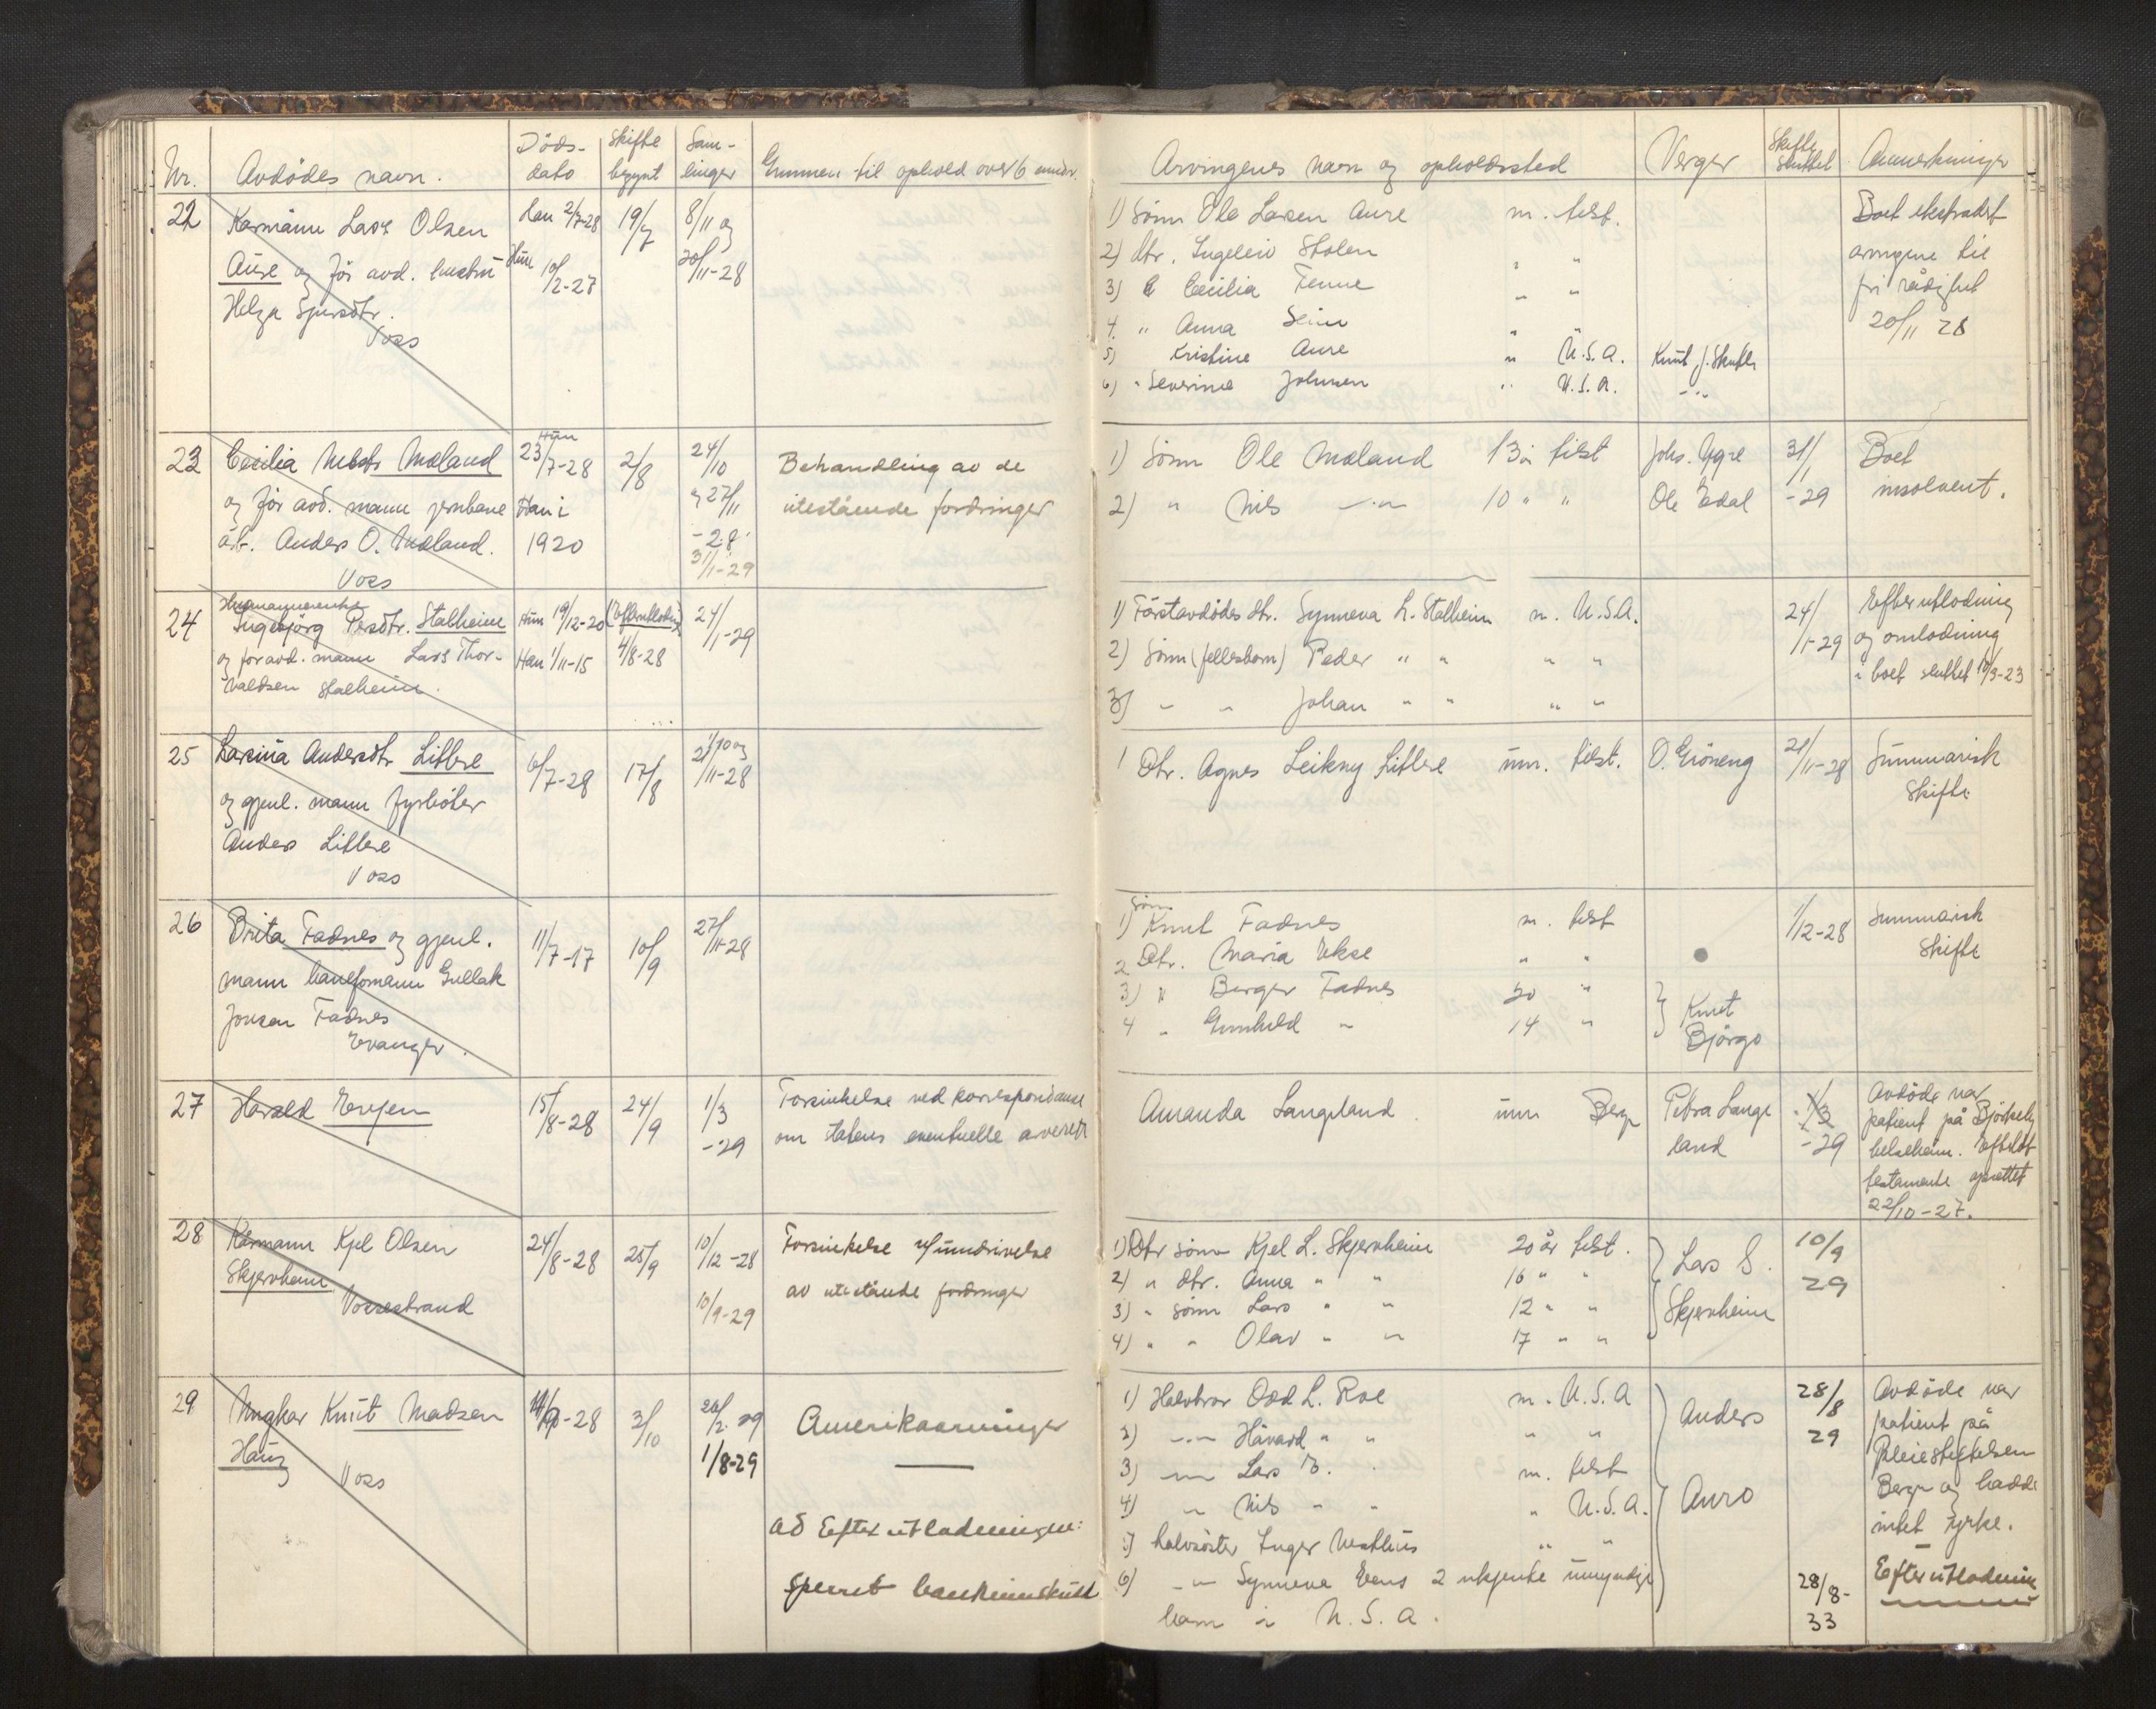 Nr. Avdödes navn. Döds-dato Skifte begynt Sam-linger Grunnen til ophold over 6 mndr. Arvingenes navn og opholdssted Verger Skifte sluttet Anmerkninger
22 Kårmann Lars Olsen Han 2/7-28 19/7 8/11 og
Aure og för avd. hustru Hun 10/2-27 20/11-28
Helga Sjursdtr.
Voss
1) Sönn Ole Larsen Aure m. tilst.
2) dtr. Ingeleiv Stolen " "
3) Cecilia Fenne " "
4. " Anna Seim "
5) Kristine Aure " U.S.A. Knut J. Skutle
6) " Severine Johnsen " U.S.A. -"-
Boet ekstradert
arvingene til
fri rådighet
20/11 28
23 Cecilia Nilsdtr Mæland Hun 23/7-28 2/8 24/10 Behandling av de
og för avd. mann jernbane Han i og 27/11 utestående fordringer
arb. Anders O. Mæland. 1920 -28
Voss 31/1-29
1) Sönn Ole Mæland 13 år tilst Johs. Ygre 31/1
2) " Nils -"- 10 " " Ole Edal -29
Boet
insolvent.
24 Husmannsenke
Ingebjörg Persdtr. Stalheim Hun 19/12-20 (Efterutlodn) 24/1-29
og för avd. mann Lars Thor- Han 1/11-15 4/8-28
valdsen Stalheim.
1) Förstavdödes dtr. Synneva L. Stalheim m. U.S.A. 24/1-29
2) Sönn (fellesbarn) Peder " " " "
3) " " Johan " " " "
Efterutlodning
og omlodning
i boet sluttet 10/3-23
25 Larsina Andersdtr Litlere 6/7-28 17/8 1/10 og
21/11-28
og gjenl. mann fyrböter
Anders Litlere
Voss
1 Dtr. Agnes Leikny Litlere um. tilst. O. Gröneng 21/11-28 Summarisk
Skifte
26 Brita Fadnes og gjenl. 11/7-17 10/9 27/11-28
mann baneformann Gullak
Jonsen Fadnes
Evanger.
1) Sönn Knut Fadnes m. tilst 1/12-28 Summarisk
2 Dtr. Maria Ekse " " Skifte
3) " Berger Fadnes 20 " Knut
4 " Gunhild " 14 " Björgo
27 Harald Eriksen 15/8-28 24/9 1/3 -29 Forsinkelse ved korrespondanse
om statens eventuelle arverett
Amanda Langeland um Berg Petra Lange
land 1/3 -29
Avdöde var
patient på
helseheim. Efterlot
testamente oprettet
22/10-27.
28 Kårmann Kjel Olsen 24/8-28 25/9 10/12-28 Forsinkelse v/inndrivelse
Skjerveheim 10/9-29 av utestående fordringer
Vossestrand
1) sönn Kjel L. Skjerveheim 20 år tilst. Lars S. 10/9
2) " dtr. Anna " " 16 " " 29
3) " sönn Lars " " 12 " " Skjerveheim
4) " " Olav " " 17 " "
29 Ungkar Knut Madsen -28 3/10 20/2-29 Amerikaarvinger
Haug 1/8-29
Voss
ad Efterutlodningen:
Sperret bankinnskudd
1) Halvbror Odd L. Roe m. U.S.A Anders 28/8
2) -"- Håvard " " " " 29
3) -"- Lars m. tilst
4) " Nils " " " U.S.A. Auro
5) halvsöster Inger " "
6) -"- Synneva 2 ukjente umyndige
barn i U.S.A.
28/8-33
Avdöde var
patient på
Pleiestiftelsen
Bergen og hadde
intet yrke.
Efterutlodning